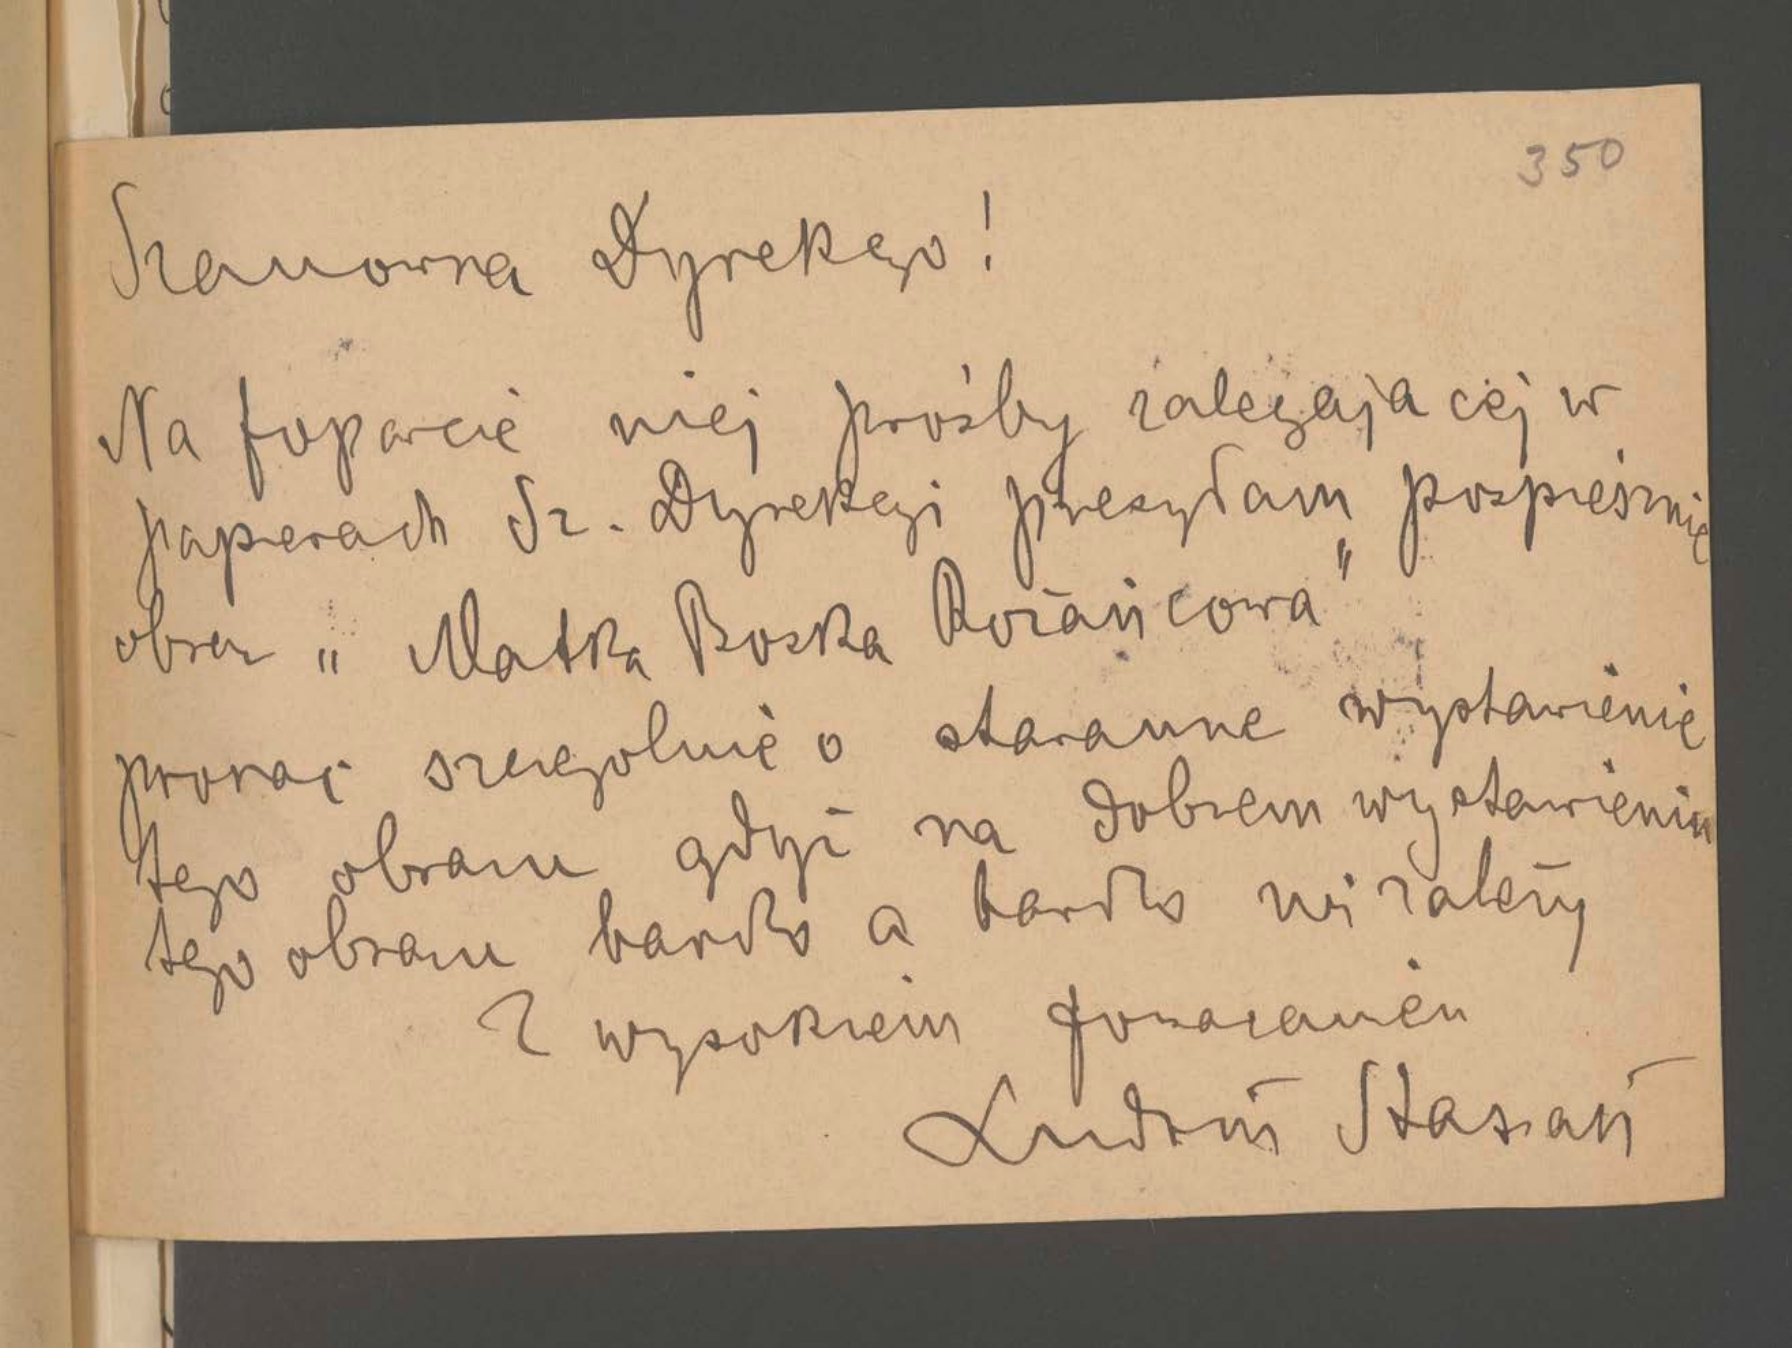 350
Szanowna Dyrekcyo!
Na poparcie mej prośby zalegającej w
papierach Sz. Dyrekcyi przesyłam pospiesznie
obraz „Matka Boska Rożańcowa"
prosząc szczegolnie o staranne wystawienie
tego obrazu gdyż na dobrem wystawieniu
tego obrazu bardzo a bardzo mi zależy
Z wysokiem poważaniem
Ludwik Stasiak